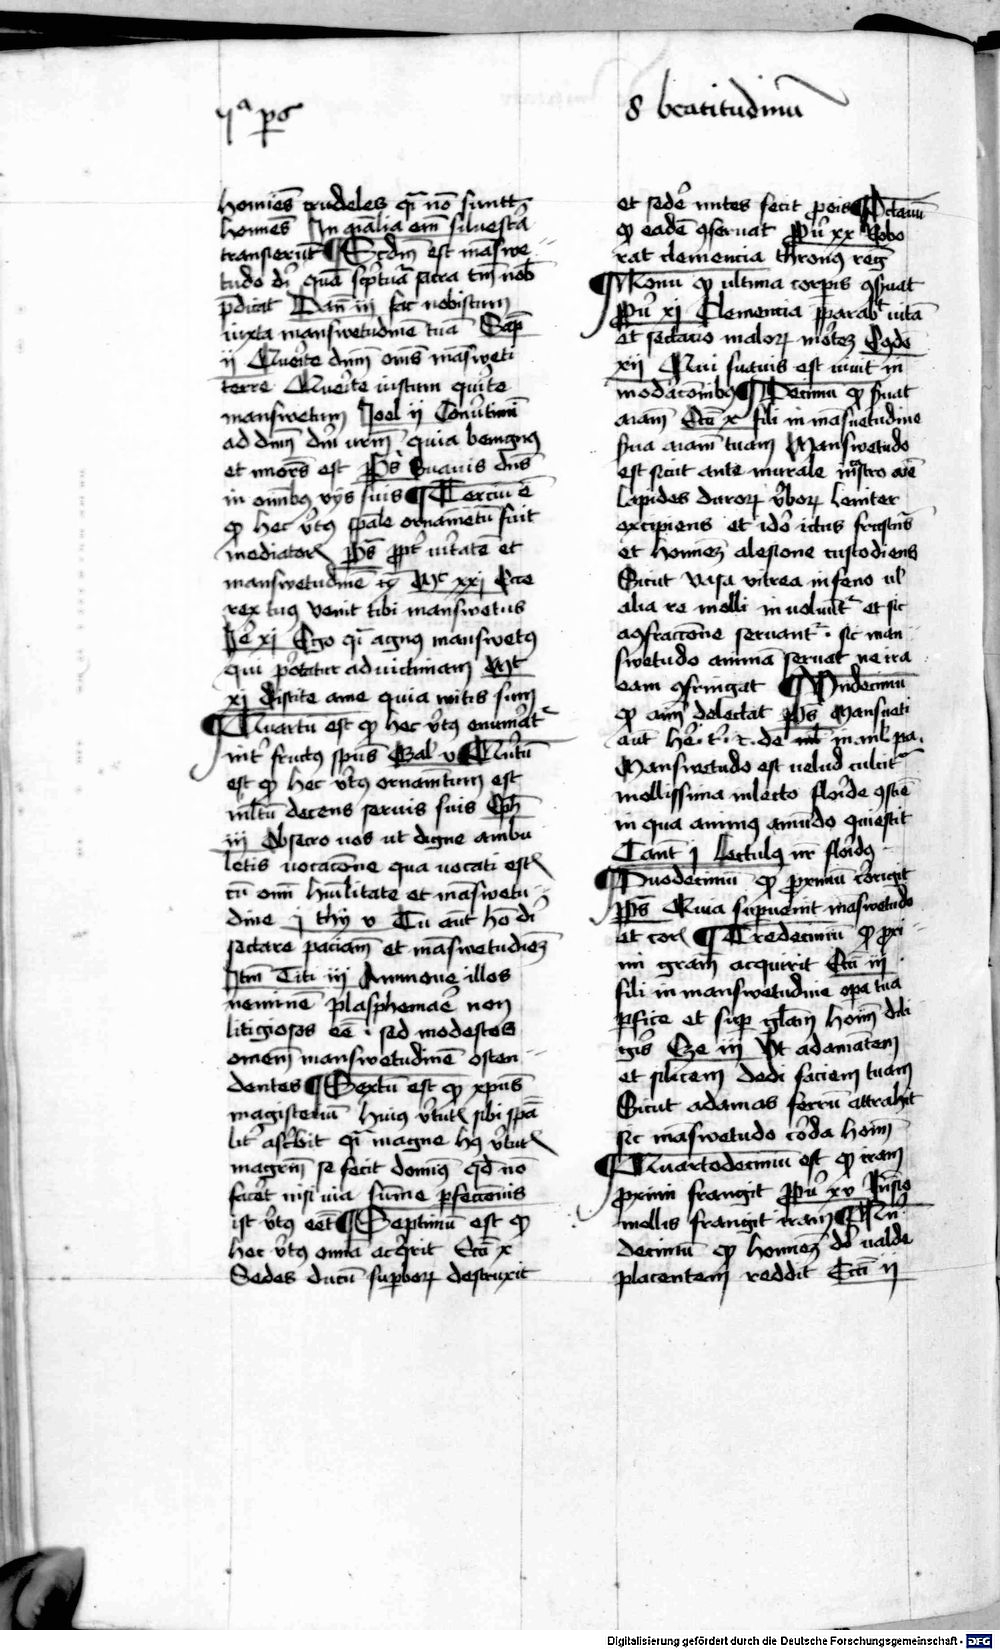 8 beatitudinū
homīes crudeles qr̄ nō sunt
homīes In aīalia em̄ siluestra
transierūt ¶ Scdm̄ est māswe
tudo di quā scptura sacra tm̄ nob̄
p̄dicat Dan̄ iij fac nobiscum
iuxta manswetudinē tuā Sap̄
ij Querite dnm̄ oms māsweti
terre Querite iustum querite
manswetum Joel ij Conūtimī
ad dnm̄ dm̄ vrm̄ quia benignus
et mīors est ps̄ Suauis dns̄
in omībus vijs suis ¶ Terciū ē
qp hec v̄tus spāle ornamētū fuit
mediatoris ps̄ ppt̄ ueritatē et
manswetudinē Mt xxj Ecce
rex tuus venit tibi manswetus
Jer̄ xj Ego qr̄ agnus manswetus
qui portatur ad uictimam Mt
xj Discite a me quia mitis sum
¶ Quartū est qp hec v̄tus enumerat
int̄ fructus spūs Gal v ¶ Quītū
est qp hec v̄tus ornamtum est
mltū decens seruis suis Eph̄
iij Obsecro uos ut digne ambu
letis uocacōne qua uocati estis
cū omī humilitate et māswetu
dine j thy v Tu aut ho di
sectare paciam̄ et maswetudīez
Itm̄ Titi iij Ammone illos
neminē plasphemare non
litigiosos eē sed modestos
omem̄ manswetudinē osten
dentes ¶ Sextū est qp xpus̄
magisteriū huius v̄tutis sibi spā
lit̄ ascbit qr̄ magne hus v̄tutis
magrm̄ se fecit domīus qd̄ nō
facet nisi uia sūme pfecc̄onis
ist v̄tus eēt ¶ Septimū est qp
hec v̄tus omīa acq̄rit Eccī x
Sedes ducū supbor destruxit
et sedē mites fecit p eis ¶ Octauū
qp eadē cōseruat Pū xx Robo
rat clemencia thronus reḡ
¶ Nonū qp ultima corpis cōseruat
Pū xj Clemencia pparat uitā
et sectatio malor mortez Ecdo
xij Qui suauis est uiuit in
modacōmibus ¶ Decimū qp seruat
aīam Eccī x fili in māsuetudine
serua aīam tuam Manswetudo
est sicut ante murale
lapides duror v̄bor leniter
excipiens et idō ictus frustrās
et homīez a lesione custodiens
Sicut vasa vitrea in feno ul̄
alia re molli in uoluūt et sic
a cōfraccōne seruant sic man
swetudo animā seruat ne ira
eam cōfringat ¶ Undecimū
qp aīm delectat ps̄ Mansueti
aut
Manswetudo est uelud culcit
mollissima in lecto florīde cōstiē
in qua animus a mūdo quiescit
Cant j Lectulus nr̄ floridus
¶ Duodecimū qp proximū corigit
ps̄ Quia supuenit maswetudo
et cor ¶ Tredecimū qp pxi
mi gram̄ acquirit Eccī iij
fili in manswetudine opa tua
pfice et sup glam̄ hoīm dili
gis Eze iij Ut adamātem
et silicem dedi faciem tuam
Sicut adamas ferrū attrahit
sic maswetudo corda hoīm
¶ Quartodecimū est qp iram
proximi frangit Pū xv Rn̄sio
mollis frangit iram ¶ Quī
decimū qp homīez dō ualde
placentem reddit Eccī ij